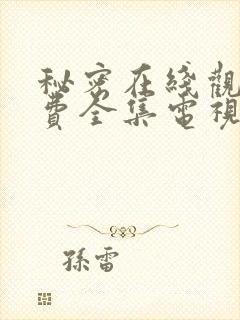 秘密在綫觀
費全集電視
孫雷